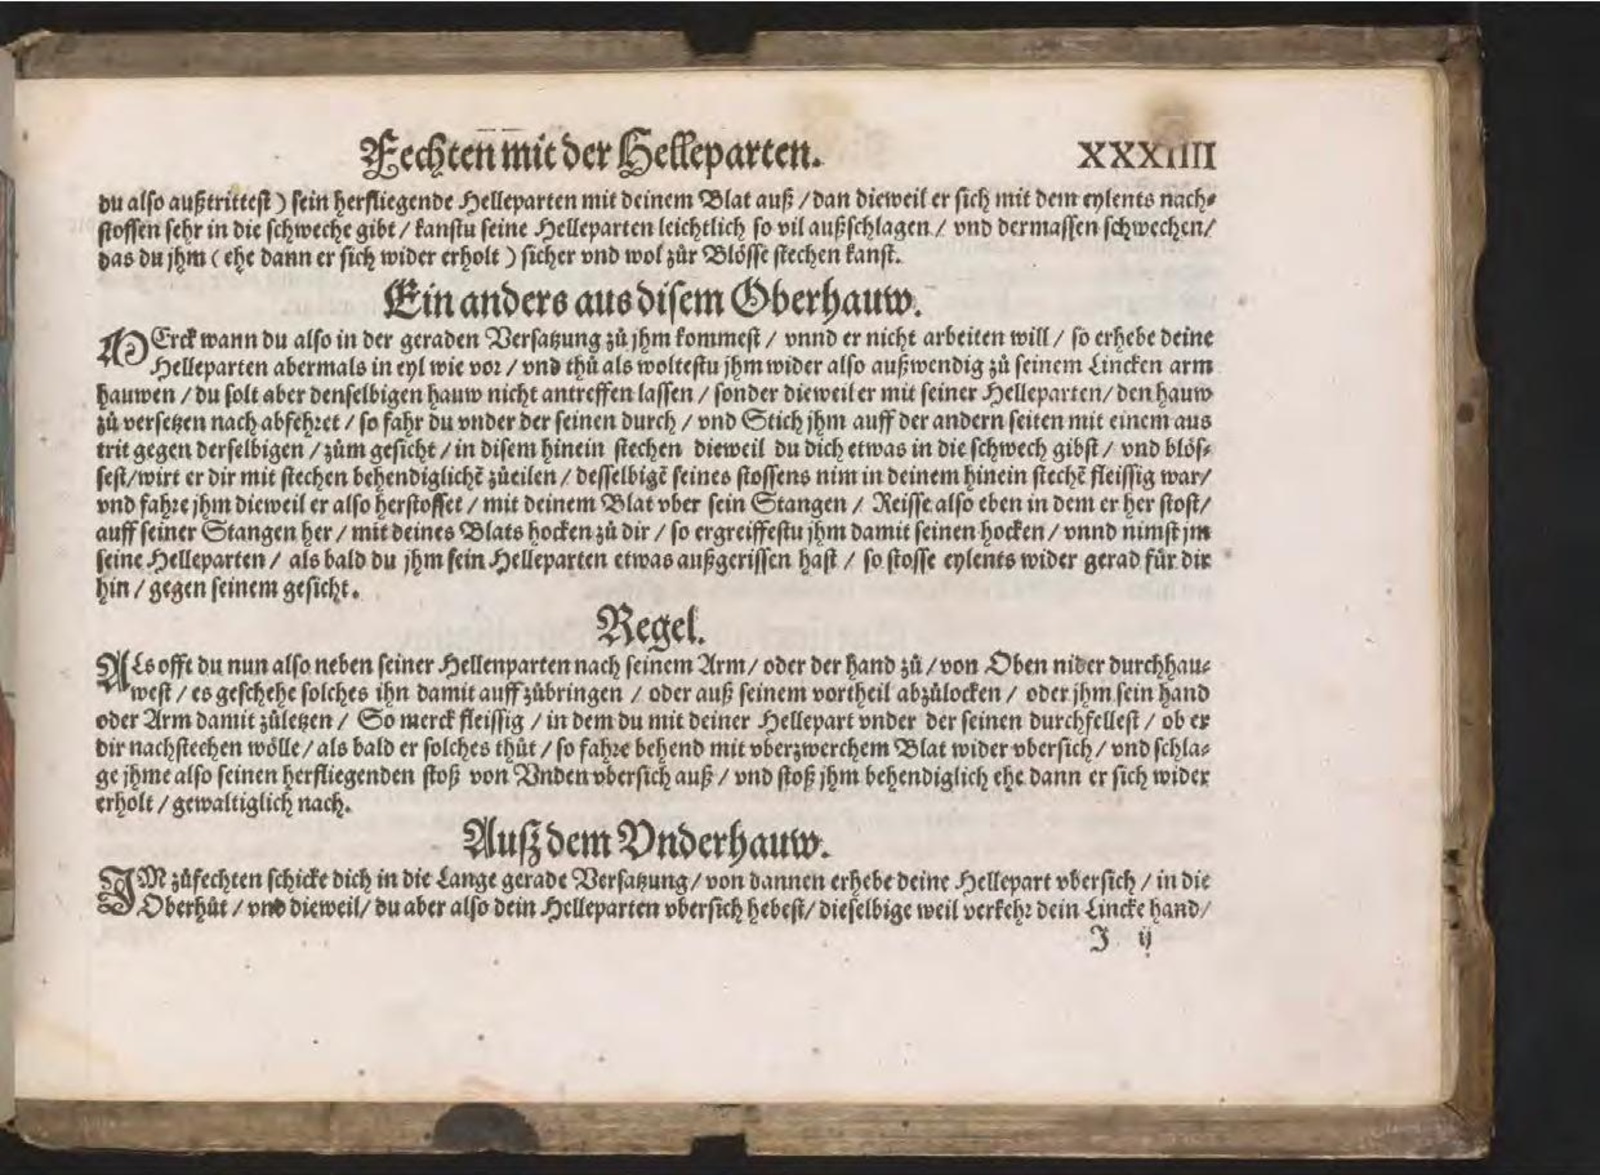 Fechten mit der Helleparten.
XXXIIII
du also außtrittest) sein herfliegende Helleparten mit deinem Blat auß / dan dieweil er sich mit dem eylents nach⸗
stossen sehr in die schweche gibt / kanstu seine Helleparten leichtlich so vil außschlagen / vnd dermassen schwechen /
das du jhm ( ehe dann er sich wider erholt ) sicher vnd wol zůr Blösse stechen kanst.
Ein anders aus disem Oberhauw.
MErck wann du also in der geraden Versatzung zů jhm kommest / vnnd er nicht arbeiten will / so erhebe deine
Helleparten abermals in eyl wie vor / vnd thů als woltestu jhm wider also außwendig zů seinem Lincken arm
hauwen / du solt aber denselbigen hauw nicht antreffen lassen / sonder dieweil er mit seiner Helleparten / den hauw
zů versetzen nach abfehret / so fahr du vnder der seinen durch / vnd Stich jhm auff der andern seiten mit einem aus
trit gegen derselbigen / zům gesicht / in disem hinein stechen dieweil du dich etwas in die schwech gibst / vnd blös⸗
sest / wirt er dir mit stechen behendiglichē zůeilen / desselbigē seines stossens nim in deinem hinein stechē fleissig war /
vnd fahre jhm dieweil er also herstosset / mit deinem Blat vber sein Stangen / Reisse also eben in dem er her stost /
auff seiner Stangen her / mit deines Blats hocken zů dir / so ergreiffestu jhm damit seinen hocken / vnnd nimst jm
seine Helleparten / als bald du jhm sein Helleparten etwas außgerissen hast / so stosse eylents wider gerad für dir
hin / gegen seinem gesicht.
Regel.
ALs offt du nun also neben seiner Hellenparten nach seinem Arm / oder der hand zů / von Oben nider durchhau⸗
west / es geschehe solches ihn damit auff zůbringen / oder auß seinem vortheil abzůlocken / oder jhm sein hand
oder Arm damit zůletzen / So merck fleissig / in dem du mit deiner Hellepart vnder der seinen durchfellest / ob er
dir nachstechen wölle / als bald er solches thůt / so fahre behend mit vberzwerchem Blat wider vbersich / vnd schla⸗
ge jhme also seinen herfliegenden stoß von Vnden vbersich auß / vnd stoß jhm behendiglich ehe dann er sich wider
erholt / gewaltiglich nach.
Auß dem Vnderhauw.
IM zůfechten schicke dich in die Lange gerade Versatzung / von dannen erhebe deine Hellepart vbersich / in die
Oberhůt / vnd dieweil / du aber also dein Helleparten vbersich hebest / dieselbige weil verkehr dein Lincke hand /
J ij